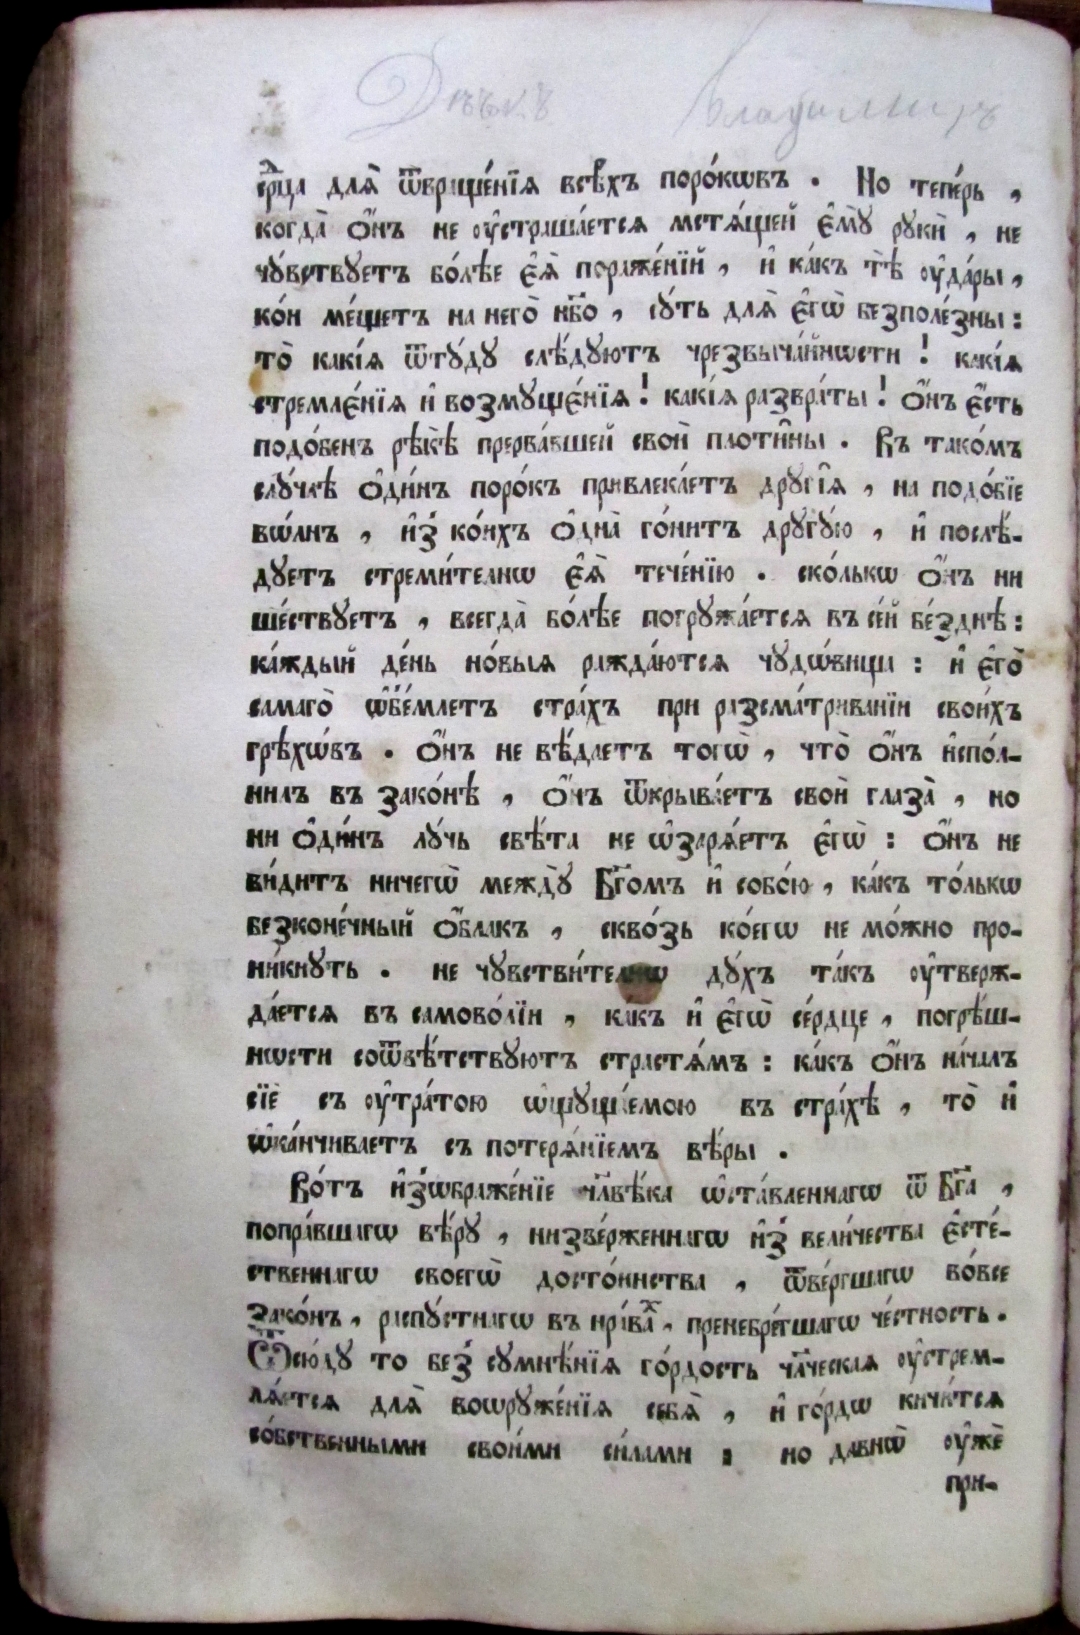 Владимиръ
срⷣца для̀ ѿвраще́нїя всѣ́хъ поро́кѡвъ . Но тепе́рь ,
когда̀ ѻ҆́нъ не ᲂу҆страша́ется мстѧ́щей є҆мꙋ̀ рꙋкѝ , не
чꙋ́вствꙋетъ бо́лѣе є҆ѧ̀ пораже́нїй , и҆ ка́къ тѣ̀ ᲂу҆да́ры ,
ко́и ме́щетъ на него̀ нб҃о , сꙋ́ть для̀ є҆гѡ̀ безполе́зны :
то̀ какі́ѧ ѿтꙋ́дꙋ слѣ́дꙋютъ чрезвыча́йнѡсти ! какі́ѧ
стремле́нїѧ и҆ возмꙋще́нїѧ ! какі́ѧ развра́ты ! ѻ҆́нъ є҆́сть
подо́бенъ рѣ́кѣ̀ прерва́вшей своѝ плоти̑ны . Въ тако́мъ
слꙋ́чаѣ ѻ҆ди́нъ поро́къ привлека́етъ дрꙋгі̑ѧ , на подо́бїе
вѡ́лнъ , и҆з̾ ко́ихъ ѻ҆дна̀ го́нитъ дрꙋгꙋ́ю , и҆ послѣ́-
дꙋетъ стреми́телнѡ є҆ѧ̀ тече́нїю . ско́лькѡ ѻ҆́нъ ни
ше́ствꙋетъ , всегда̀ бо́лѣе погрꙋжа́ется въ се́й бе́зднѣ :
ка́ждый де́нь но́выѧ ражда́ются чꙋдѡ́вища : и҆ є҆го̀
самаго̀ ѡ҆б̾е́млетъ стра́хъ при разсма́триванїи свои́хъ
грѣхѡ́въ . ѻ҆́нъ не вѣ́даетъ тогѡ̀ , что̀ ѻ҆́нъ и҆спо́л-
нилъ въ зако́нѣ , ѻ҆́нъ ѿкрыва́етъ своѝ глаза̀ , но
ни ѻ҆ди́нъ лꙋ́чь свѣ́та не ѡ҆заря́етъ є҆гѡ̀ : ѻ҆́нъ не
ви́дитъ ничегѡ̀ междꙋ̀ Бг҃омъ и҆ собо́ю , ка́къ то́лькѡ
безконе́чный ѻ҆́блакъ , сквѡ́зь ко́егѡ не мо́жно про-
ни́кнꙋть . не чꙋвстви́телнѡ дꙋ́хъ та́къ ᲂу҆твержⷣ-
да́ется въ самово́лїи , какъ и҆ є҆гѡ̀ се́рдце , погрѣ́ш-
нѡсти соѿвѣ́тствꙋютъ страстѧ́мъ : ка́къ ѻ҆́нъ на́чалъ
сїѐ съ ᲂу҆тра́тою ѡ҆щꙋща́емою въ стра́хѣ , то̀ и҆
ѡ҆ка́нчиваетъ съ потеря́нїемъ вѣ́ры .
Во́тъ и҆з̾ѡбраже́нїе чл҃вѣ́ка ѡ҆ста́вленнагѡ ѿ Бг҃а ,
попра́вшагѡ вѣ́рꙋ , низве́рженнагѡ и҆з̾ вели́чества є҆сте́-
ственнагѡ своегѡ̀ досто́инства , ѿве́ргшагѡ во́все
зако́нъ , распꙋ́стнагѡ въ нра́ваⷯ , пренебре́гшагѡ че́стность .
Ѿсю́дꙋ то без̾ сꙋмнѣ́нїѧ го́рдость чл҃ческая ᲂу҆стрем-
лѧ́ется для̀ воѡрꙋже́нїѧ себѧ̀ , и҆ го́рдѡ кичи́тся
со́бственными свои́ми си́лами : но давнѡ̀ ᲂу҆жѐ
при-